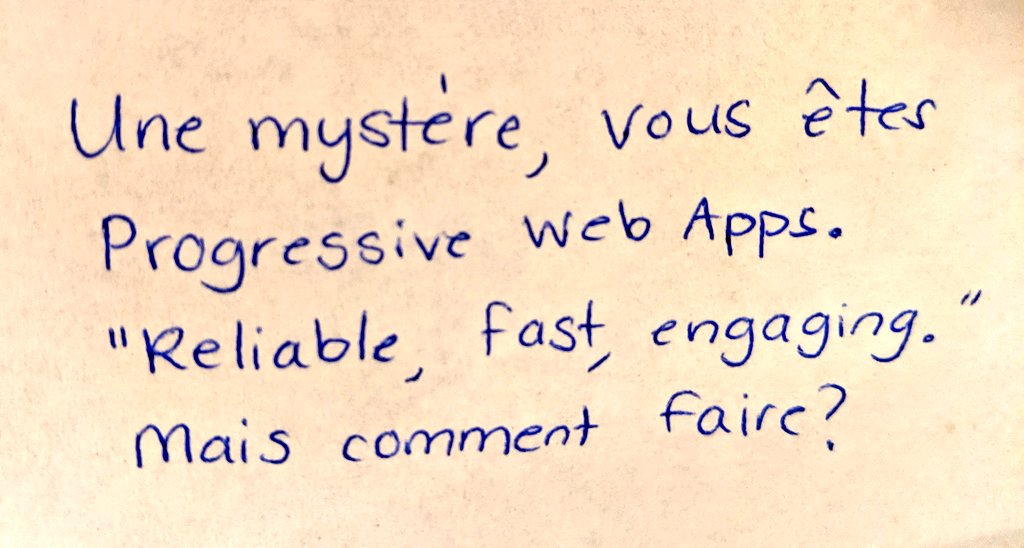 Une mystère, vous êtes
Progressive Web Apps.
"Reliable, fast, engaging."
Mais comment faire?